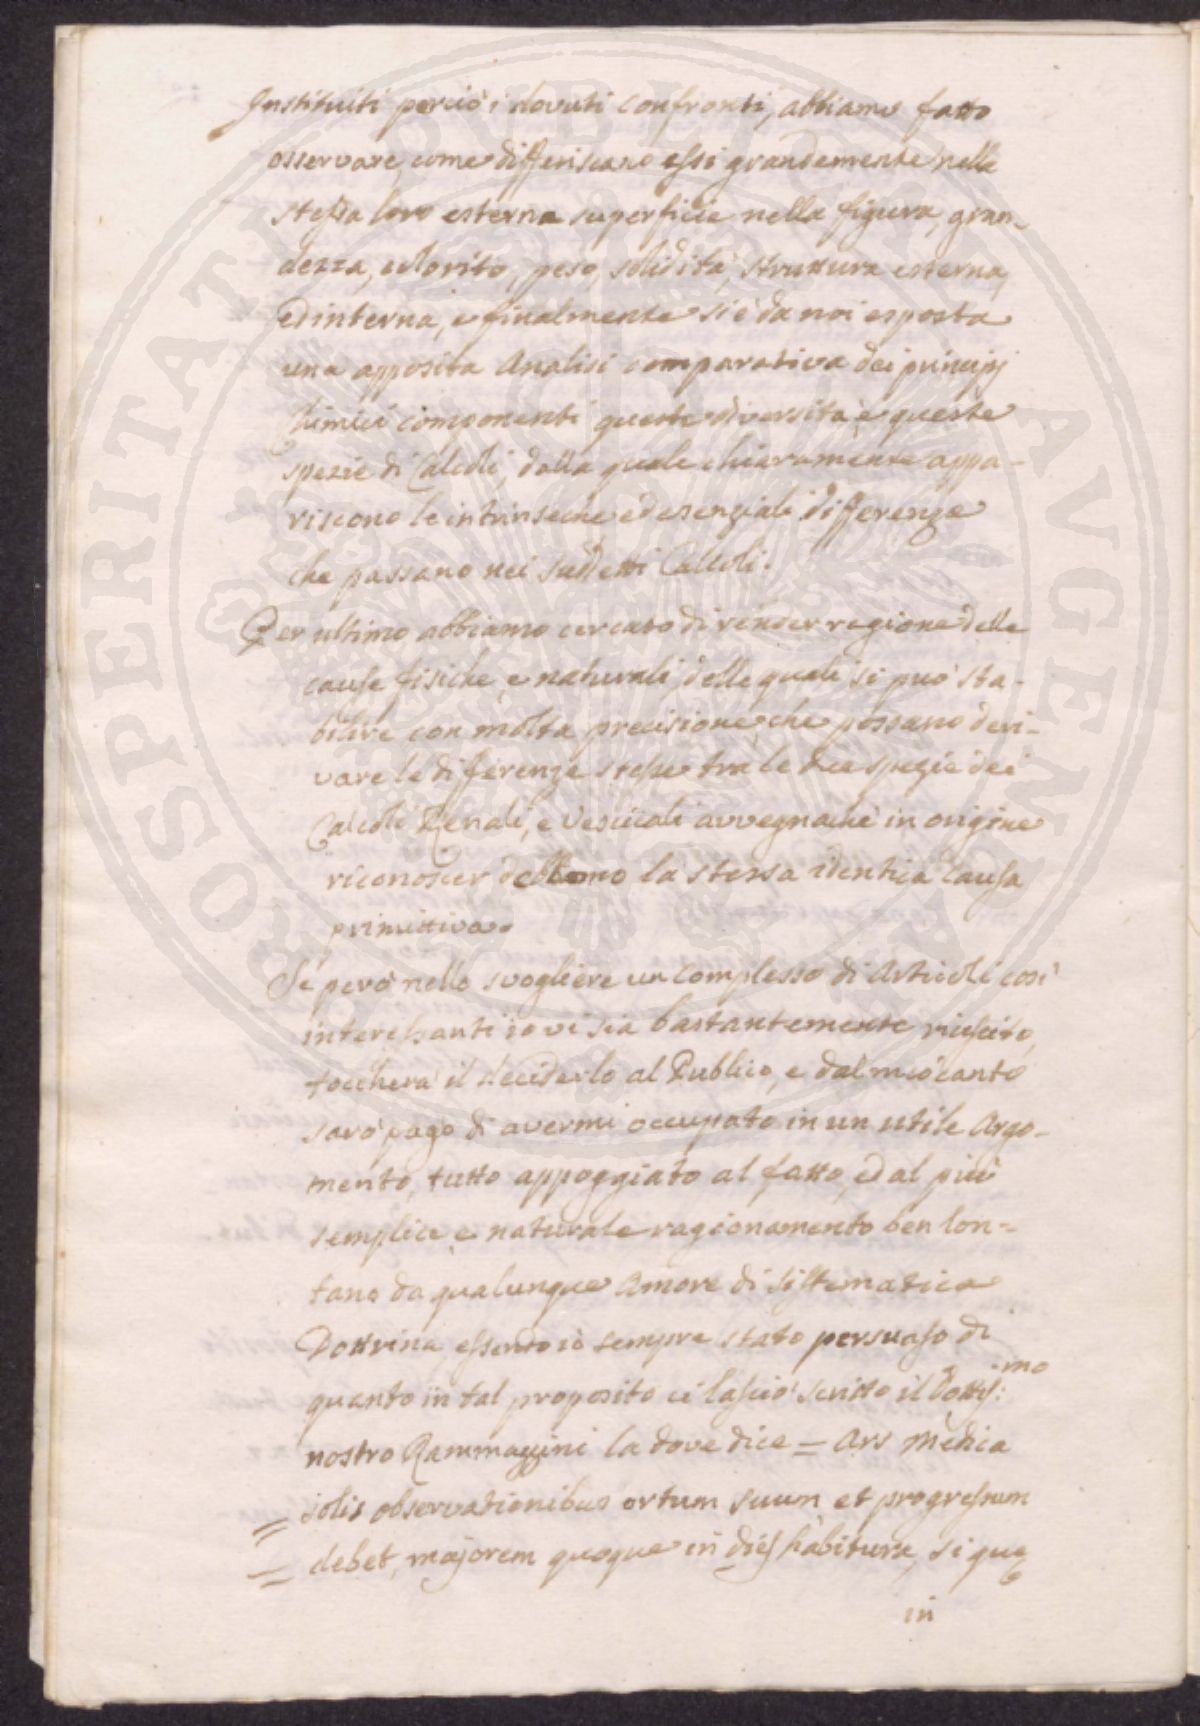 Instituiti perciò i dovuti confronti, abbiamo fatto
osservare, come differiscano essi grandemente nella
stessa loro esterna superficie nella figura, gran-
dezza, colorito, peso, solidità, struttura esterna,
ed interna, e finalmente si è da noi esposta
una apposita Analisi comparativa dei principj
Chimici componenti queste diversità, e queste
spezie di Calcoli, dalla quale chiaramente appa-
riscono le intrinseche ed esenziali differenze
che passano nei suddetti Calcoli.
Per ultimo abbiamo cercato di render regione delle
cause fisiche, e naturali, delle quali si può sta-
bilire con molta precisione, che possano deri-
vare le differenze stesse tra le due spezie dei
Calcoli Renali, e Vescicali avvegnachè in origine
riconoscer debbono la stessa identica causa
primittiva.
Se però nello svogliere un complesso di Articoli così
interessanti io vi sia bastantemente riuscito,
toccherà il deciderlo al Publico, e dal mio canto
sarò pago di avermi occupato in un utile Argo-
mento, tutto appoggiato al fatto, ed al più
semplice, e naturale ragionamento ben lon-
tano da qualunque Amore di sistematica
Dottrina, essendo io sempre stato persuaso di
quanto in tal proposito ci lasciò scritto il Dottis:mo
nostro Rammazzini la dove dice = Ars Medica
= solis observationibus ortum suum et progressum
= debet, majorem quoque in dies habitura, si quę
in
ROSPERITATI PUBLICAE AVGENDAE